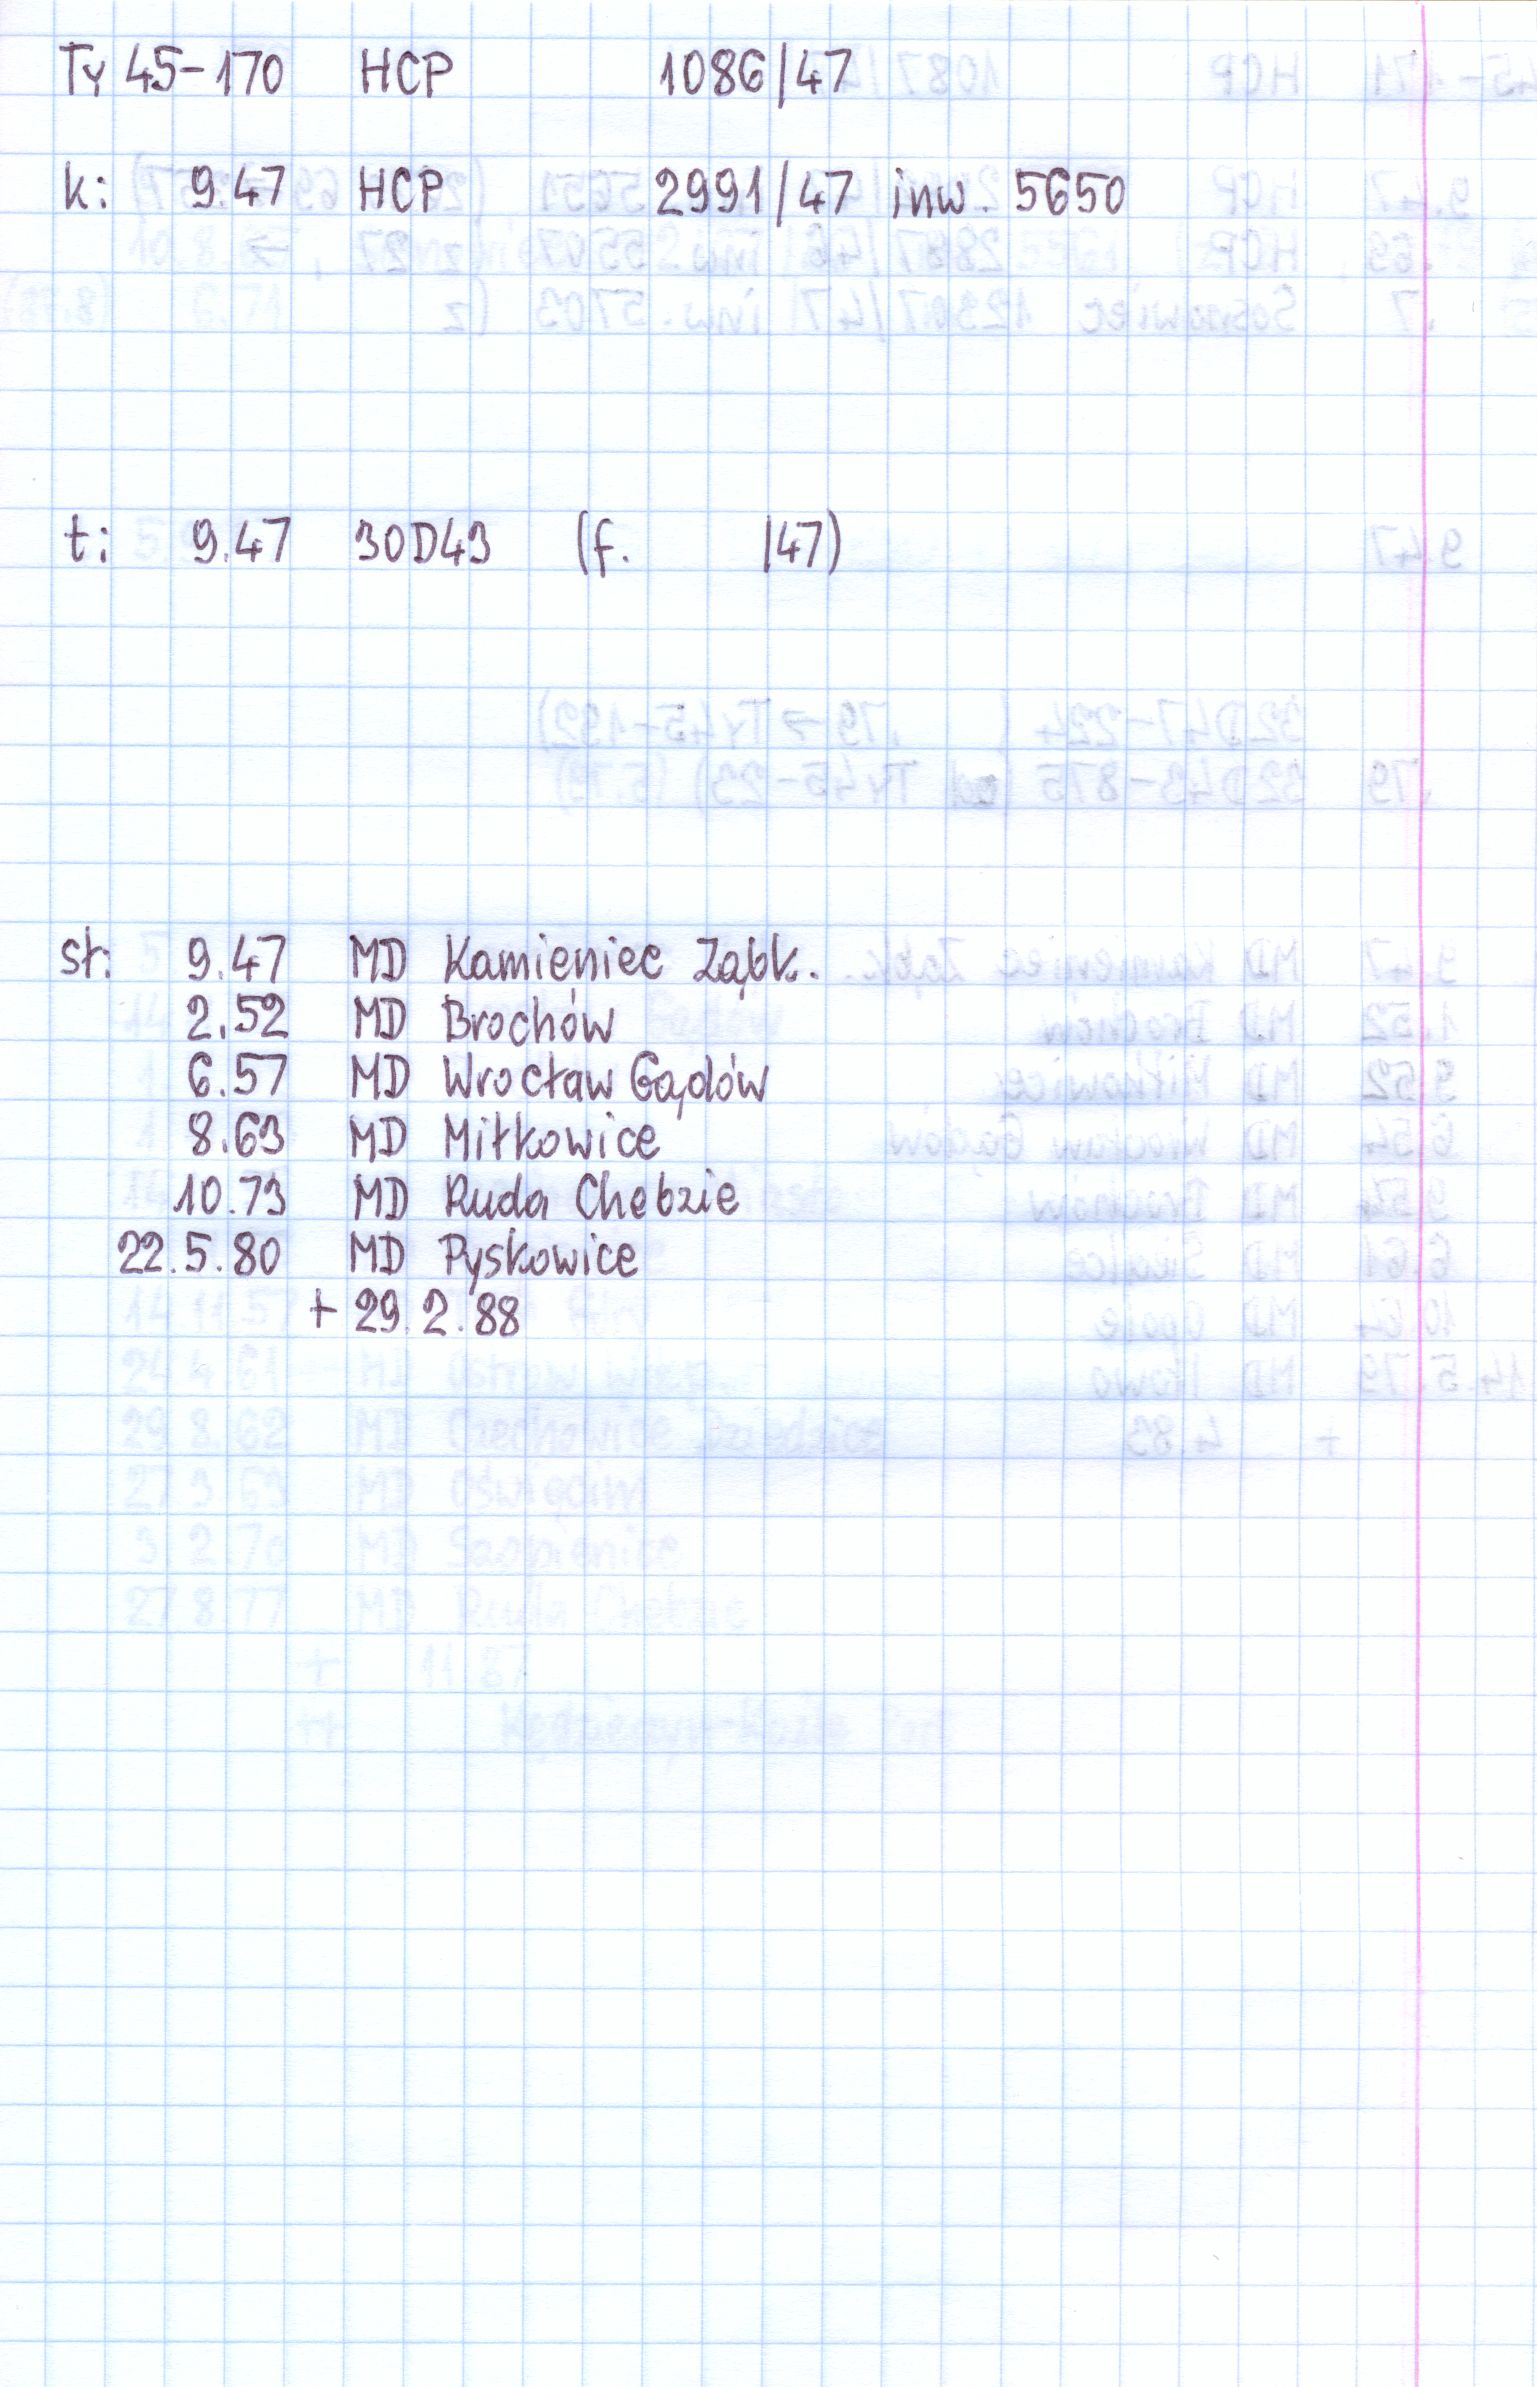 Ty 45-170 HCP 1086/47
k: 9.47 HCP 2991/47 inw. 5650
t: 9.47 30D43 (f. /47)
st: 9.47 MD Kamieniec Ząbk.
2.52 MD Brochów
6.57 MD Wrocław Gądów
8.63 MD Miłkowice
10.73 MD Ruda Chebzie
22.5.80 MD Pyskowice
+ 29.2.88